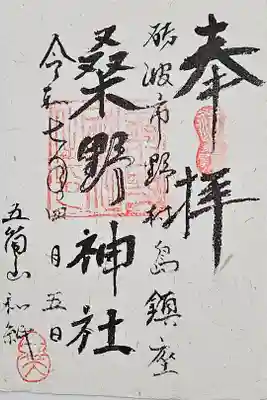 奉拝
砺波市野村島鎮座
桑野神社
令和七年四月五日
五箇山和紙